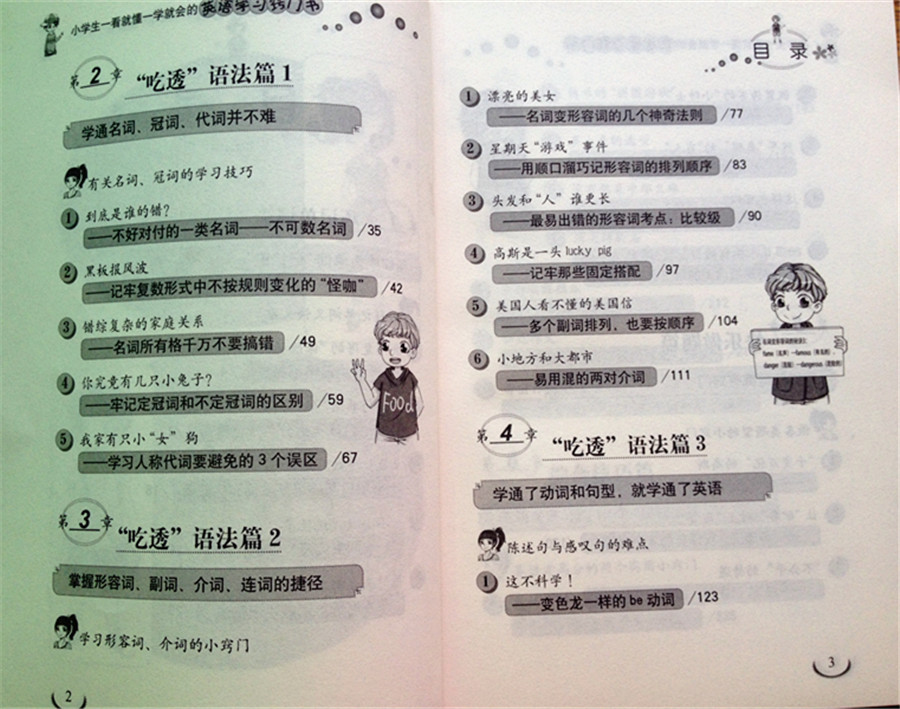 小学生一看就懂一学就会的英语学习窍门书
第2章 “吃透”语法篇1
学通名词、冠词、代词并不难
有关名词、冠词的学习技巧
1 到底是谁的错?
——不好对付的一类名词——不可数名词 /35
2 黑板报风波
——记牢复数形式中不按规则变化的“怪咖” /42
3 错综复杂的家庭关系
——名词所有格千万不要搞错 /49
4 你究竟有几只小兔子?
——牢记定冠词和不定冠词的区别 /59
5 我家有只小“女”狗
——学习人称代词要避免的3个误区 /67
Food
第3章 “吃透”语法篇2
掌握形容词、副词、介词、连词的捷径
学习形容词、介词的小窍门
2
目录
1 漂亮的美女
——名词变形容词的几个神奇法则 /77
2 星期天“游戏”事件
——用顺口溜巧记形容词的排列顺序 /83
3 头发和“人”谁更长
——最易出错的形容词考点:比较级 /90
4 高斯是一头lucky pig
——记牢那些固定搭配 /97
5 美国人看不懂的美国信
——多个副词排列,也要按顺序 /104
6 小地方和大都市
——易用混的两对介词 /111
第4章 “吃透”语法篇3
学通了动词和句型,就学通了英语
陈述句与感叹句的难点
1 这不科学!
——变色龙一样的be动词 /123
3